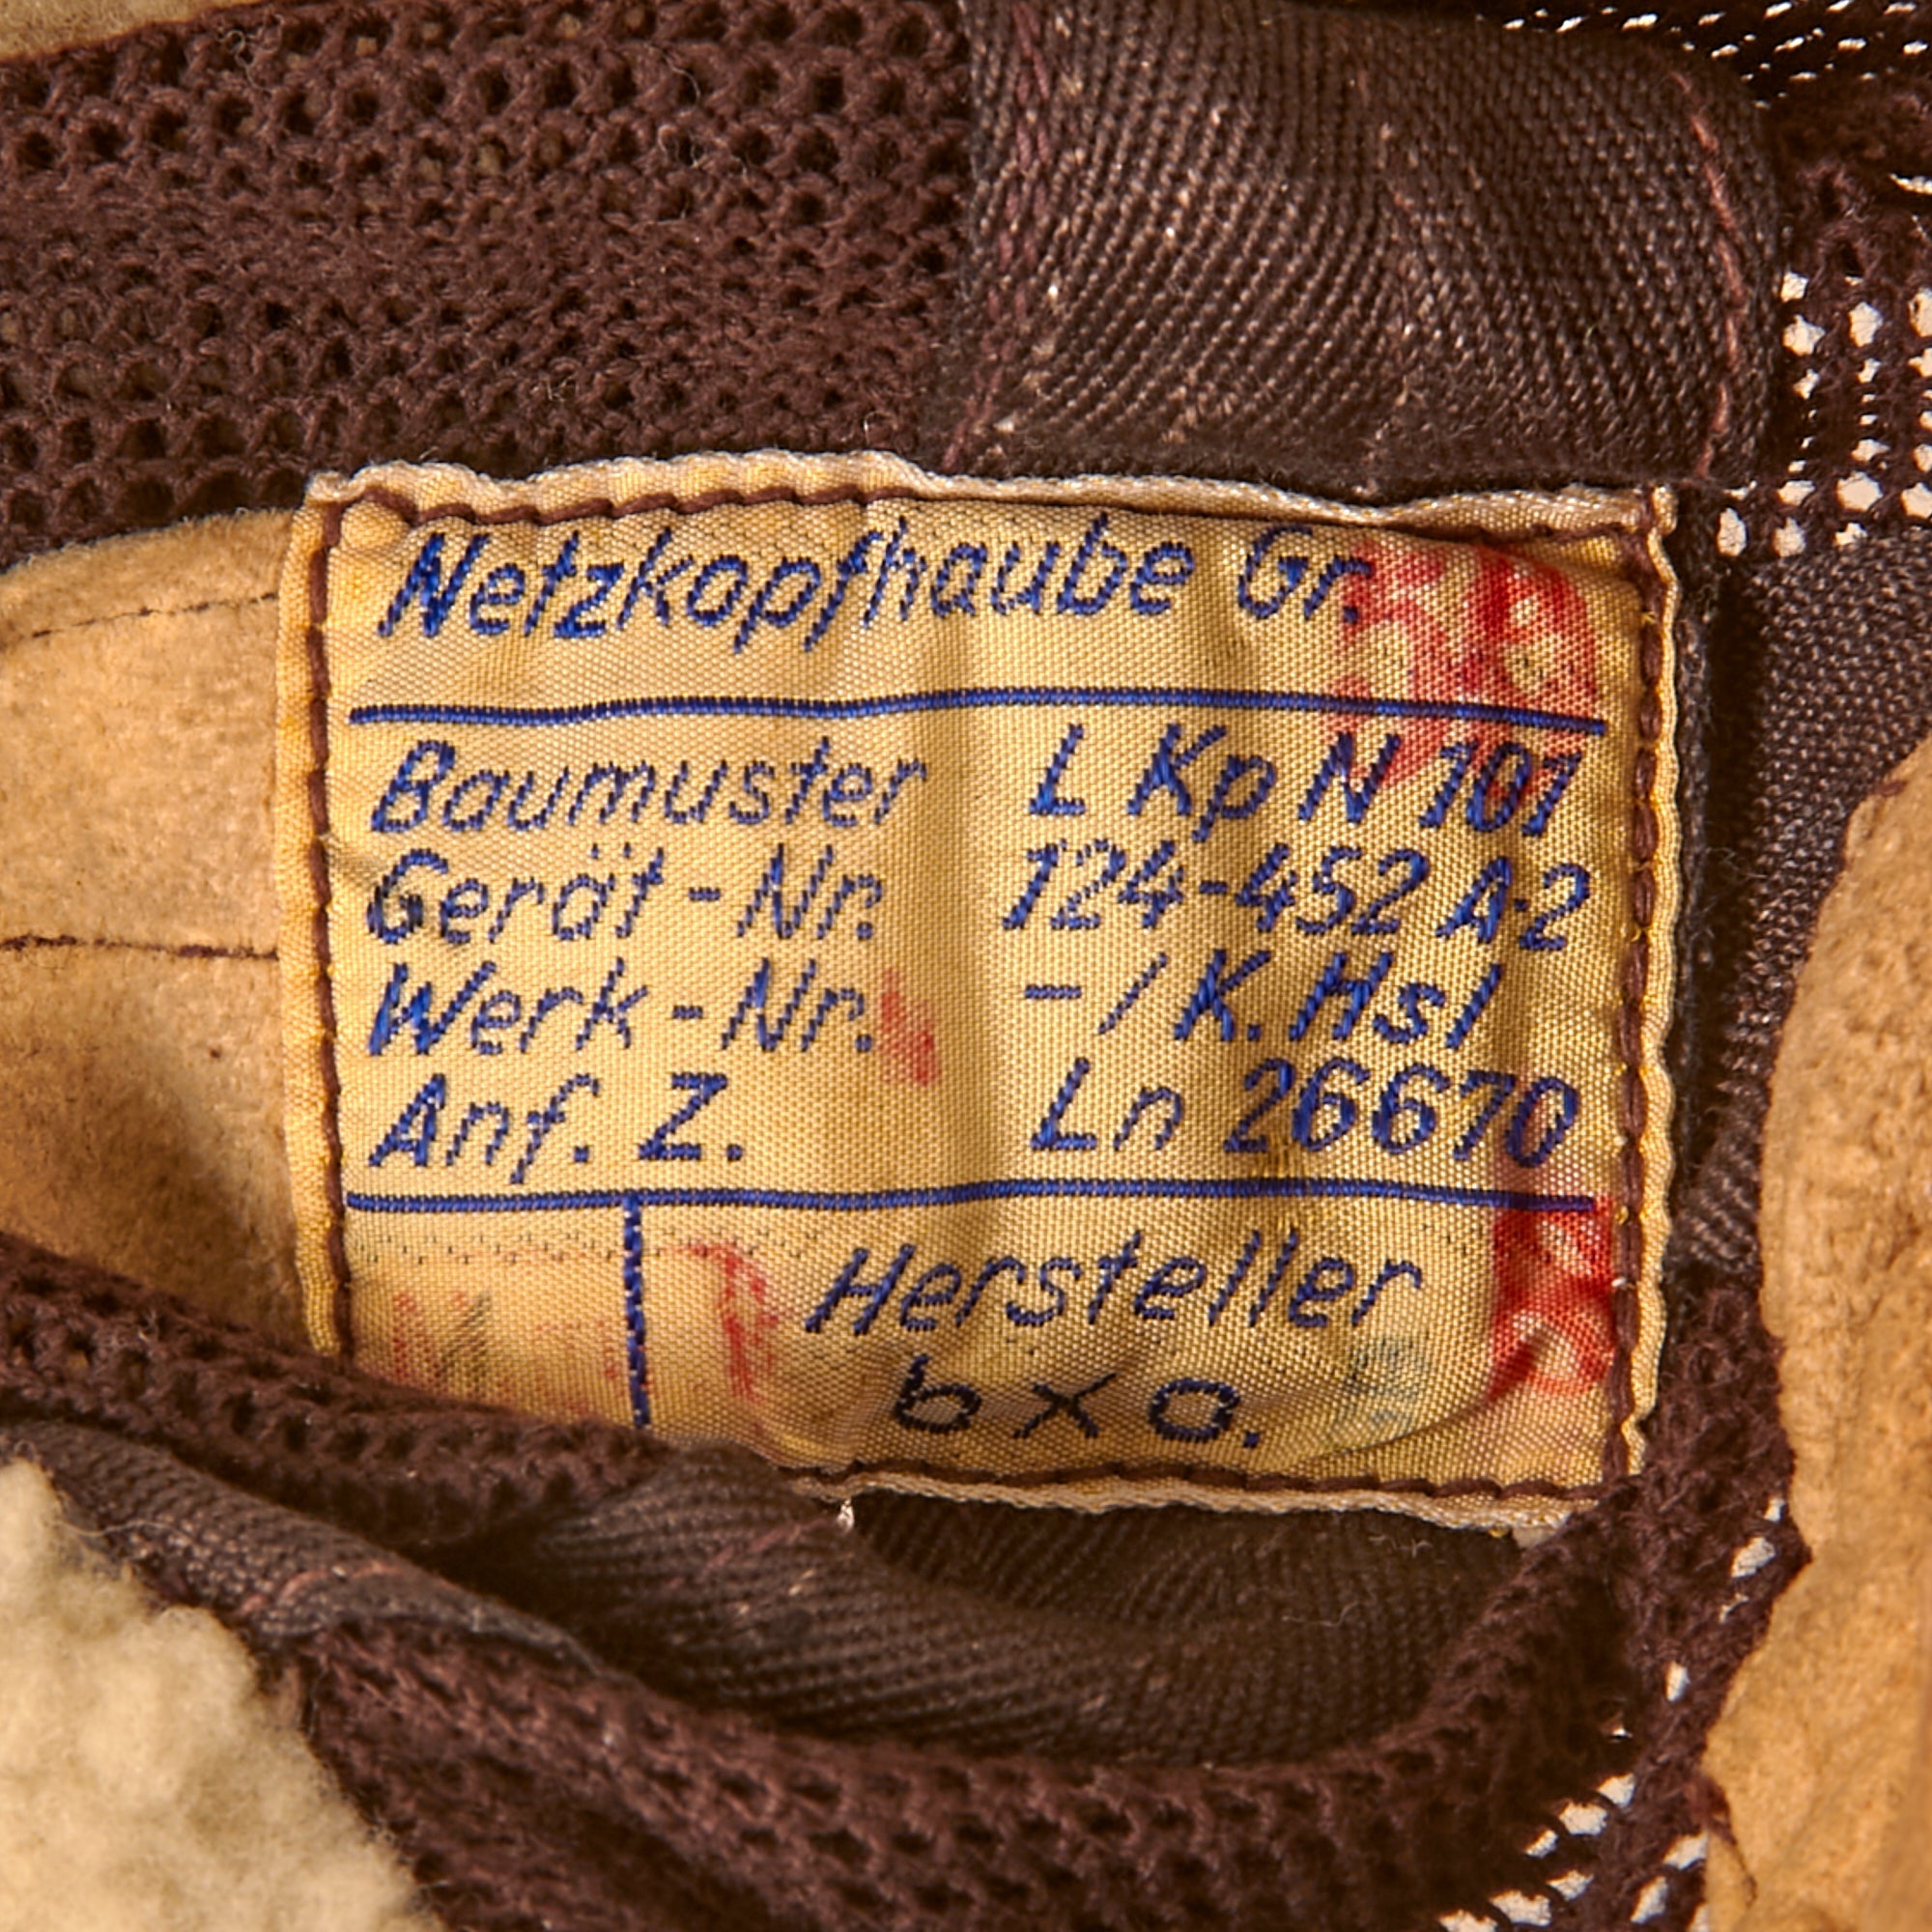 Netzkopfhaube Gr.
Baumuster L Kp N 101
Gerät-Nr. 124-452 A-2
Werk-Nr. -/K.Hsl
Anf. Z. Ln 26670
Hersteller
bxa.